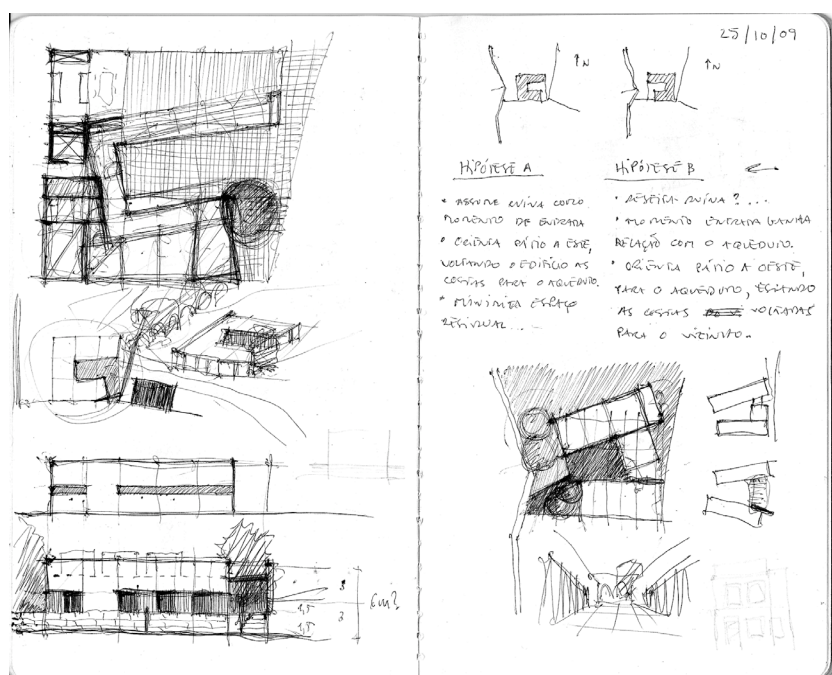 25/10/09
↑N
↑N
HIPÓTESE A
• ASSUME RUÍNA COMO
MOMENTO DE ENTRADA
• ORIENTA PÁTIO A ESTE,
VOLTANDO O EDIFÍCIO AS
COSTAS PARA O AQUEDUTO.
• MINIMIZA ESPAÇO
RESIDUAL...
HIPÓTESE B
• RESPEITA RUÍNA?...
• MOMENTO ENTRADA GANHA
RELAÇÃO COM O AQUEDUTO.
• ORIENTA PÁTIO A OESTE,
PARA O AQUEDUTO, ESTANDO
AS COSTAS VOLTADAS
PARA O VIZINHO.
3
1,5
3
1,5
6m?